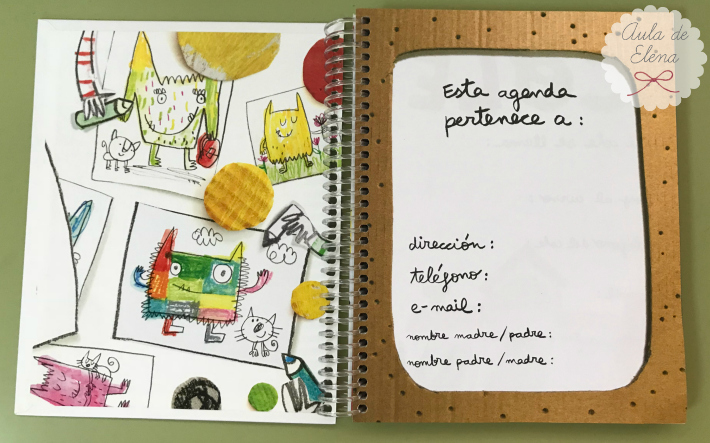 Aula de
Elena
Esta agenda
pertenece a :
dirección :
teléfono :
e-mail :
nombre madre/padre :
nombre padre/madre :